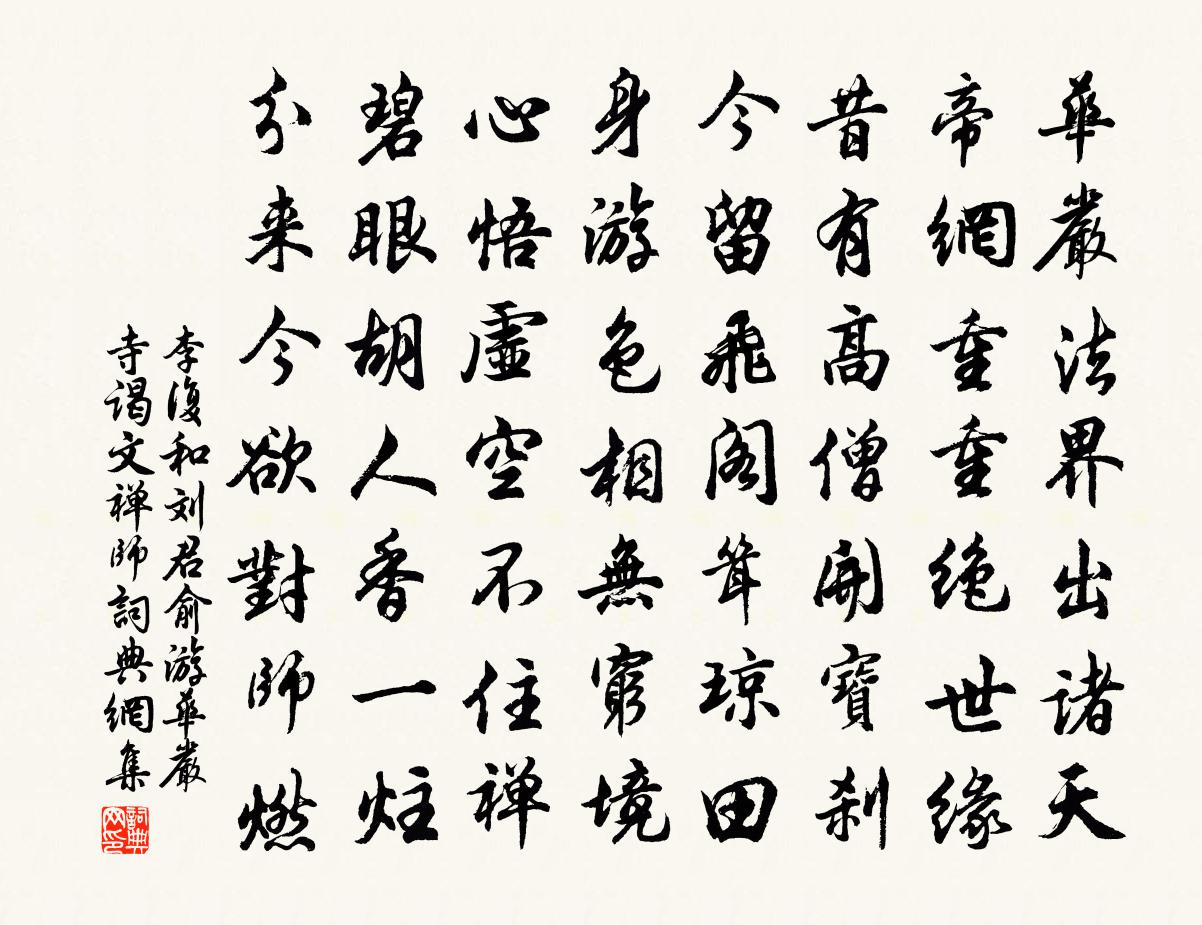 華嚴法界出诸天
帝網重重绝世缘
昔有高僧開寶刹
今留飛阁耸琼田
身游色相無窮境
心悟虛空不住禅
碧眼胡人香一炷
分来今欲對師燃
李復和刘君俞游華嚴
寺谒文禅師詞典網集
詞典網印